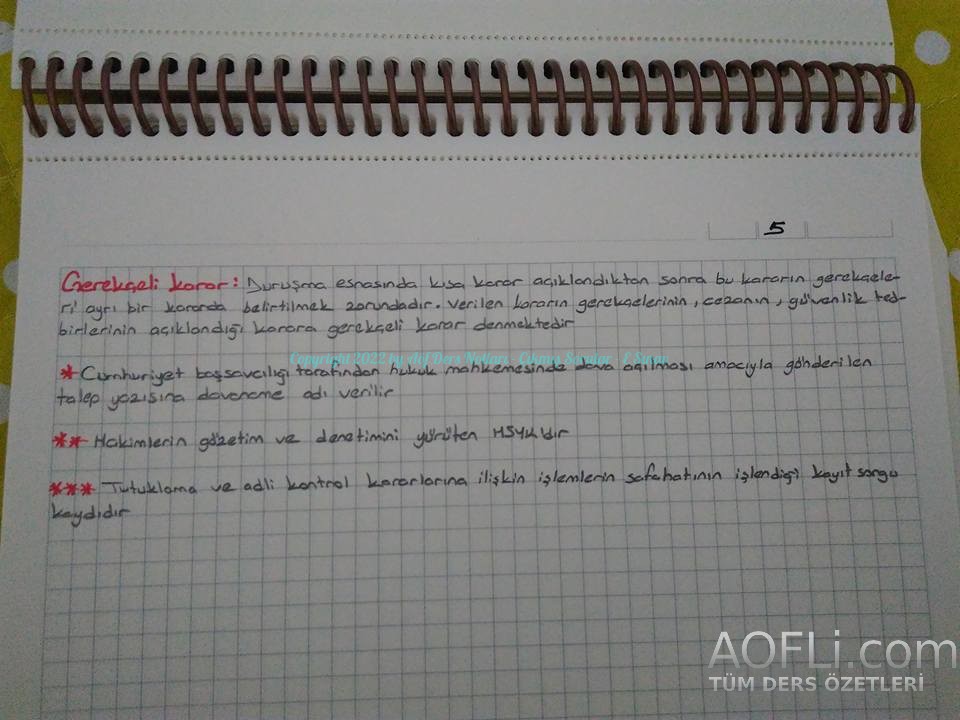 5
Gerekçeli karar: Duruşma esnasında kısa karar açıklandıktan sonra bu kararın gerekçele-
ri ayrı bir kararda belirtilmek zorundadır. Verilen kararın gerekçelerinin, cezanın, güvenlik ted-
birlerinin açıklandığı karara gerekçeli karar denmektedir
Copyright 2022 by Aof Ders Notları
* Cumhuriyet başsavcılığı tarafından hukuk mahkemesinde dava açılması amacıyla gönderilen
talep yazısına davaname adı verilir
** Hakimlerin gözetim ve denetimini yürüten HSYK'dır
*** Tutuklama ve adli kontrol kararlarına ilişkin işlemlerin safahatının işlendiği kayıt sorgu
kaydıdır
AOFLi.com
TÜM DERS ÖZETLERİ